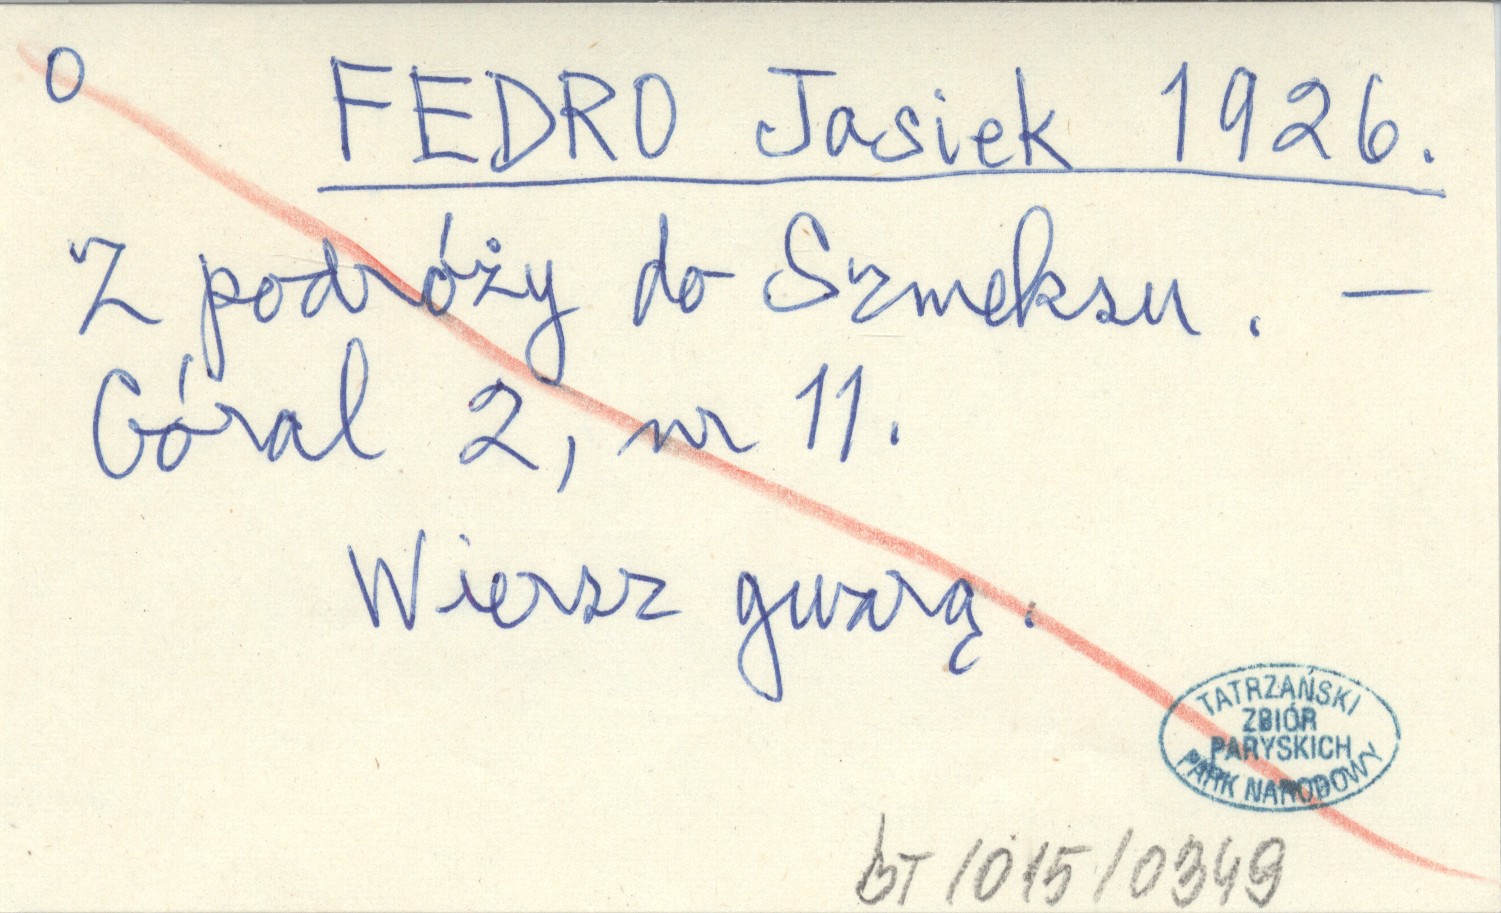 O FEDRO Jasiek 1926.
Z podróży do Szmeksu. —
Góral 2, nr 11.
Wiersz gwarą.
TATRZAŃSKI
ZBIÓR
PARYSKICH
PARK NARODOWY
bT/015/0349